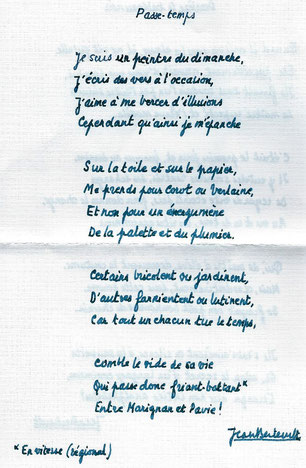 Passe-temps
Je suis un peintre du dimanche,
J'écris des vers à l'occasion,
J'aime à me bercer d'illusions
Cependant qu'ainsi je m'épanche
Sur la toile et sur le papier,
Me prends pour Corot ou Verlaine,
Et non pour un énergumène
De la palette et du plumier.
Certains bricolent ou jardinent,
D'autres farnientent ou lutinent,
Car tout un chacun tue le temps,
Comble le vide de sa vie
Qui passe donc friant-battant*
Entre Marignan et Pavie !
*En vitesse (régional)